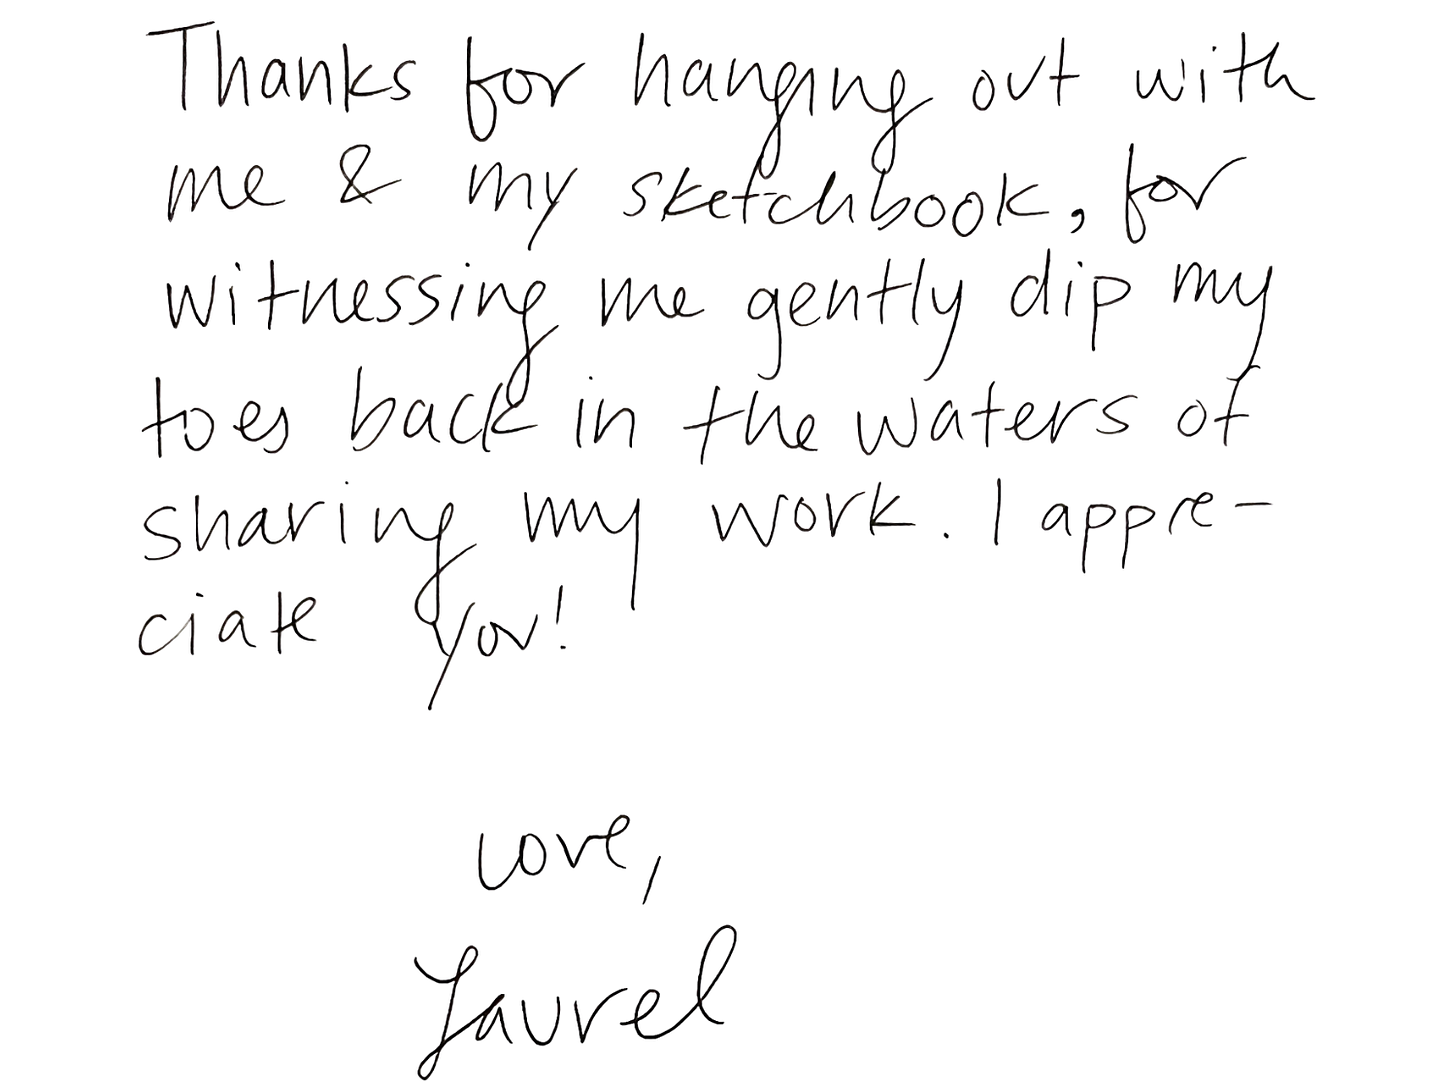 Thanks for hanging out with
me & my sketchbook, for
witnessing me gently dip my
toes back in the waters of
sharing my work. I appre-
ciate you!
Love,
Laurel